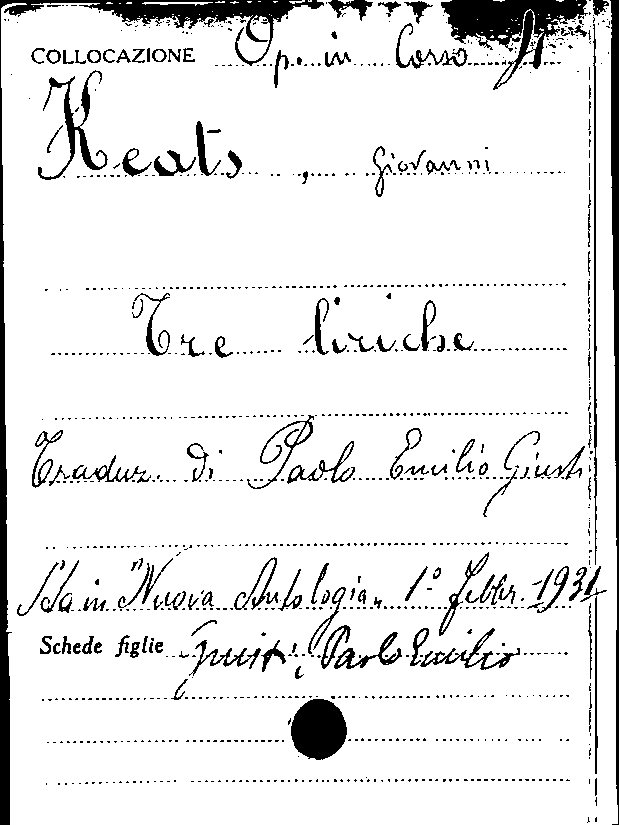 COLLOCAZIONE Op. in Corso
Keats, Giovanni
Tre liriche
Traduz. di Paolo Emilio Giusti
Sta in "Nuova Antologia" 1° Febbr. 1931
Schede figlie Giusti, Paolo Emilio